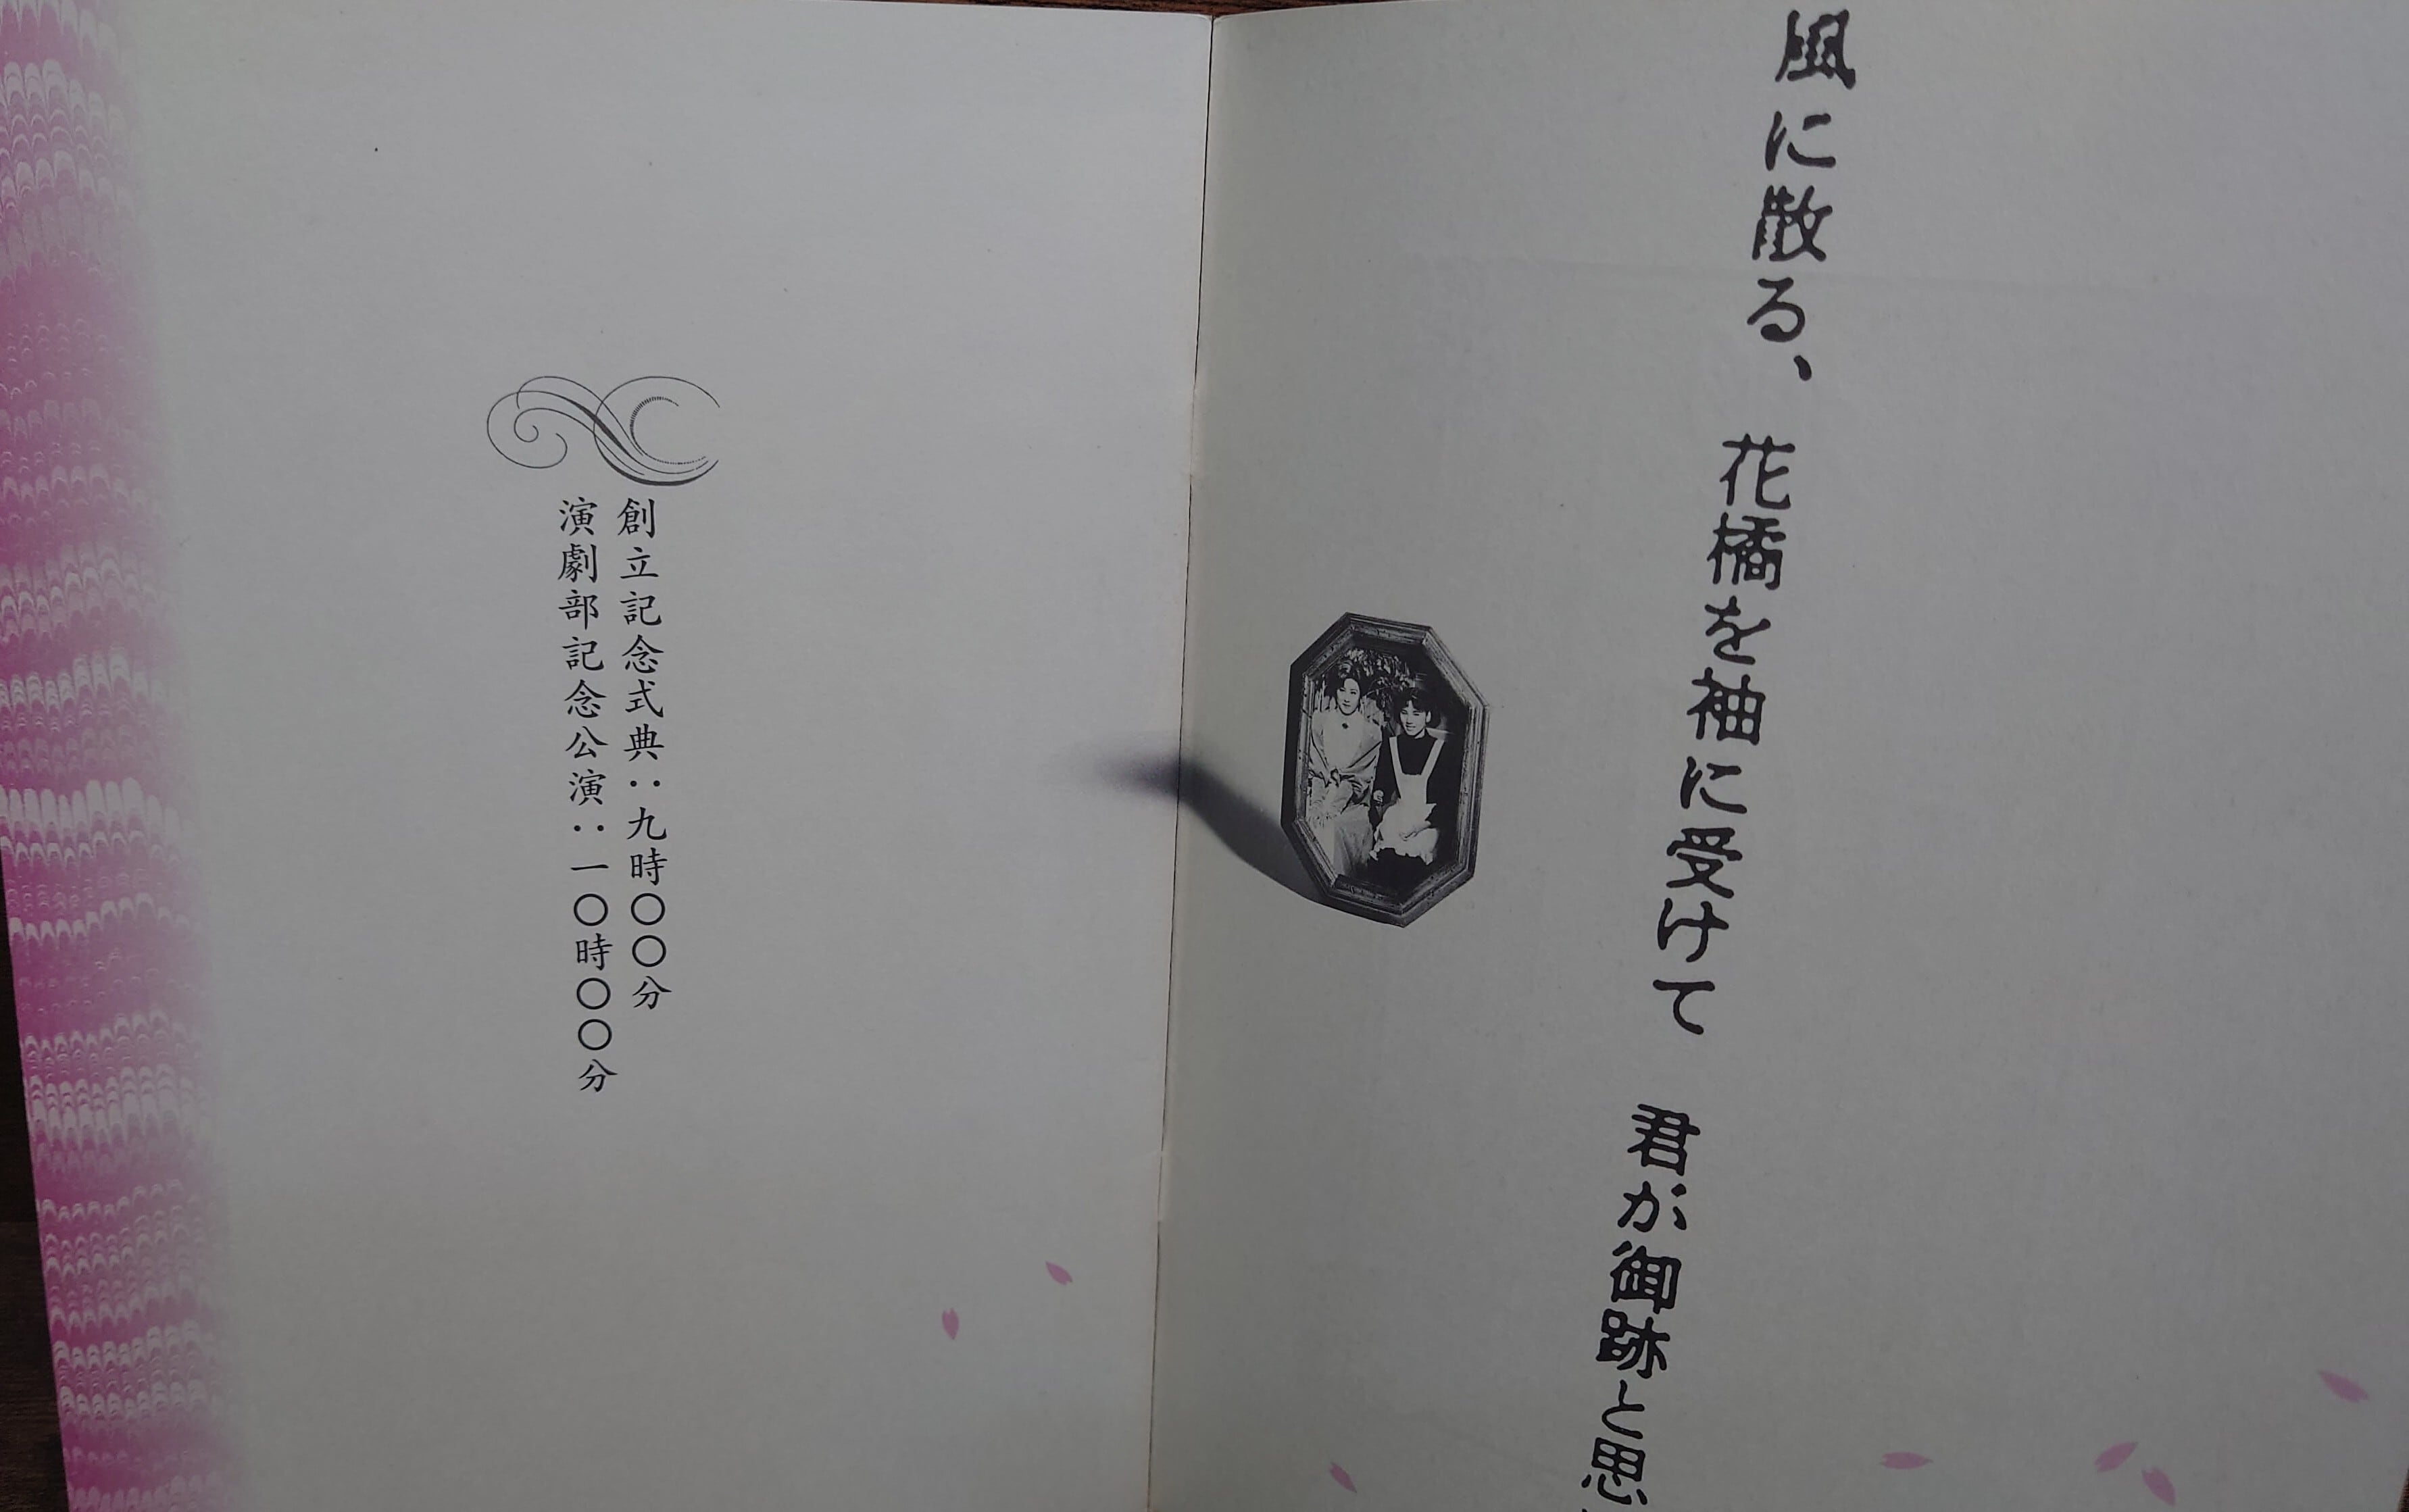 風に散る、 花橘を袖に受けて 君が御跡と思
創立記念式典：九時〇〇分
演劇部記念公演：一〇時〇〇分